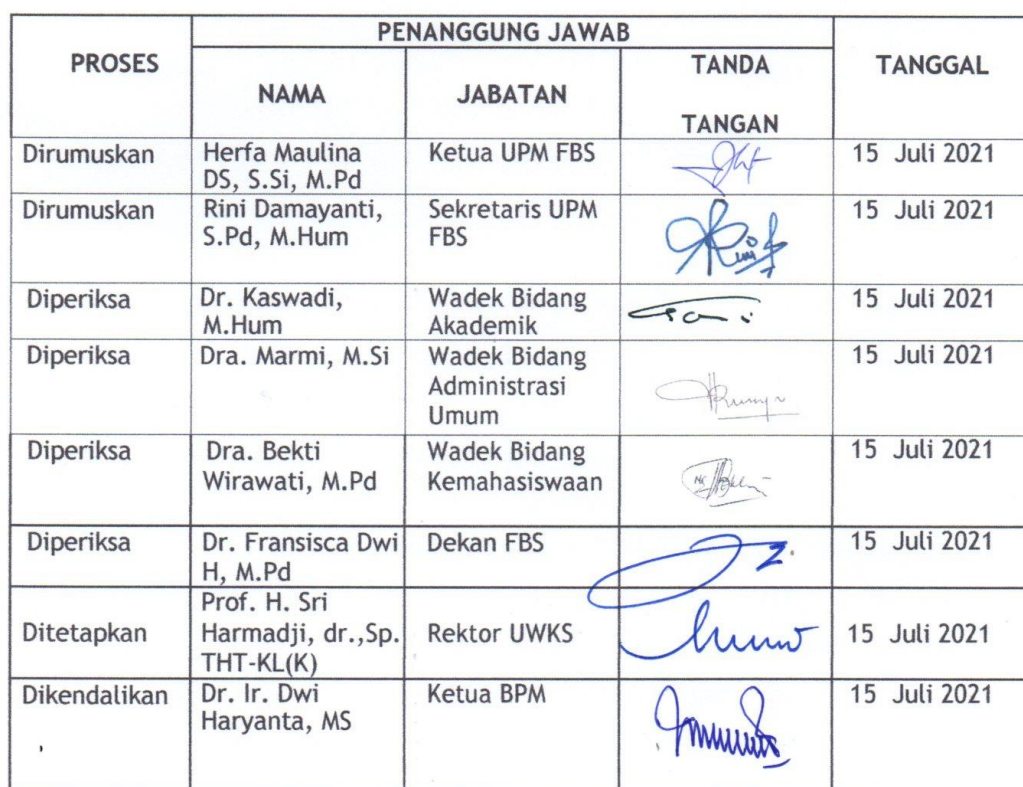 PENANGGUNG JAWAB
PROSES
TANGGAL
NAMA
JABATAN
TANDA
TANGAN
Dirumuskan
Herfa Maulina
DS, S.Si, M.Pd
Ketua UPM FBS
15 Juli 2021
Dirumuskan
Rini Damayanti,
S.Pd, M.Hum
Sekretaris UPM
FBS
15 Juli 2021
Diperiksa
Dr. Kaswadi,
M.Hum
Wadek Bidang
Akademik
15 Juli 2021
Diperiksa
Dra. Marmi, M.Si
Wadek Bidang
Administrasi
Umum
15 Juli 2021
Diperiksa
Dra. Bekti
Wirawati, M.Pd
Wadek Bidang
Kemahasiswaan
15 Juli 2021
Diperiksa
Dr. Fransisca Dwi
H, M.Pd
Dekan FBS
15 Juli 2021
Ditetapkan
Prof. H. Sri
Harmadji, dr.,Sp.
THT-KL(K)
Rektor UWKS
15 Juli 2021
Dikendalikan
Dr. Ir. Dwi
Haryanta, MS
Ketua BPM
15 Juli 2021